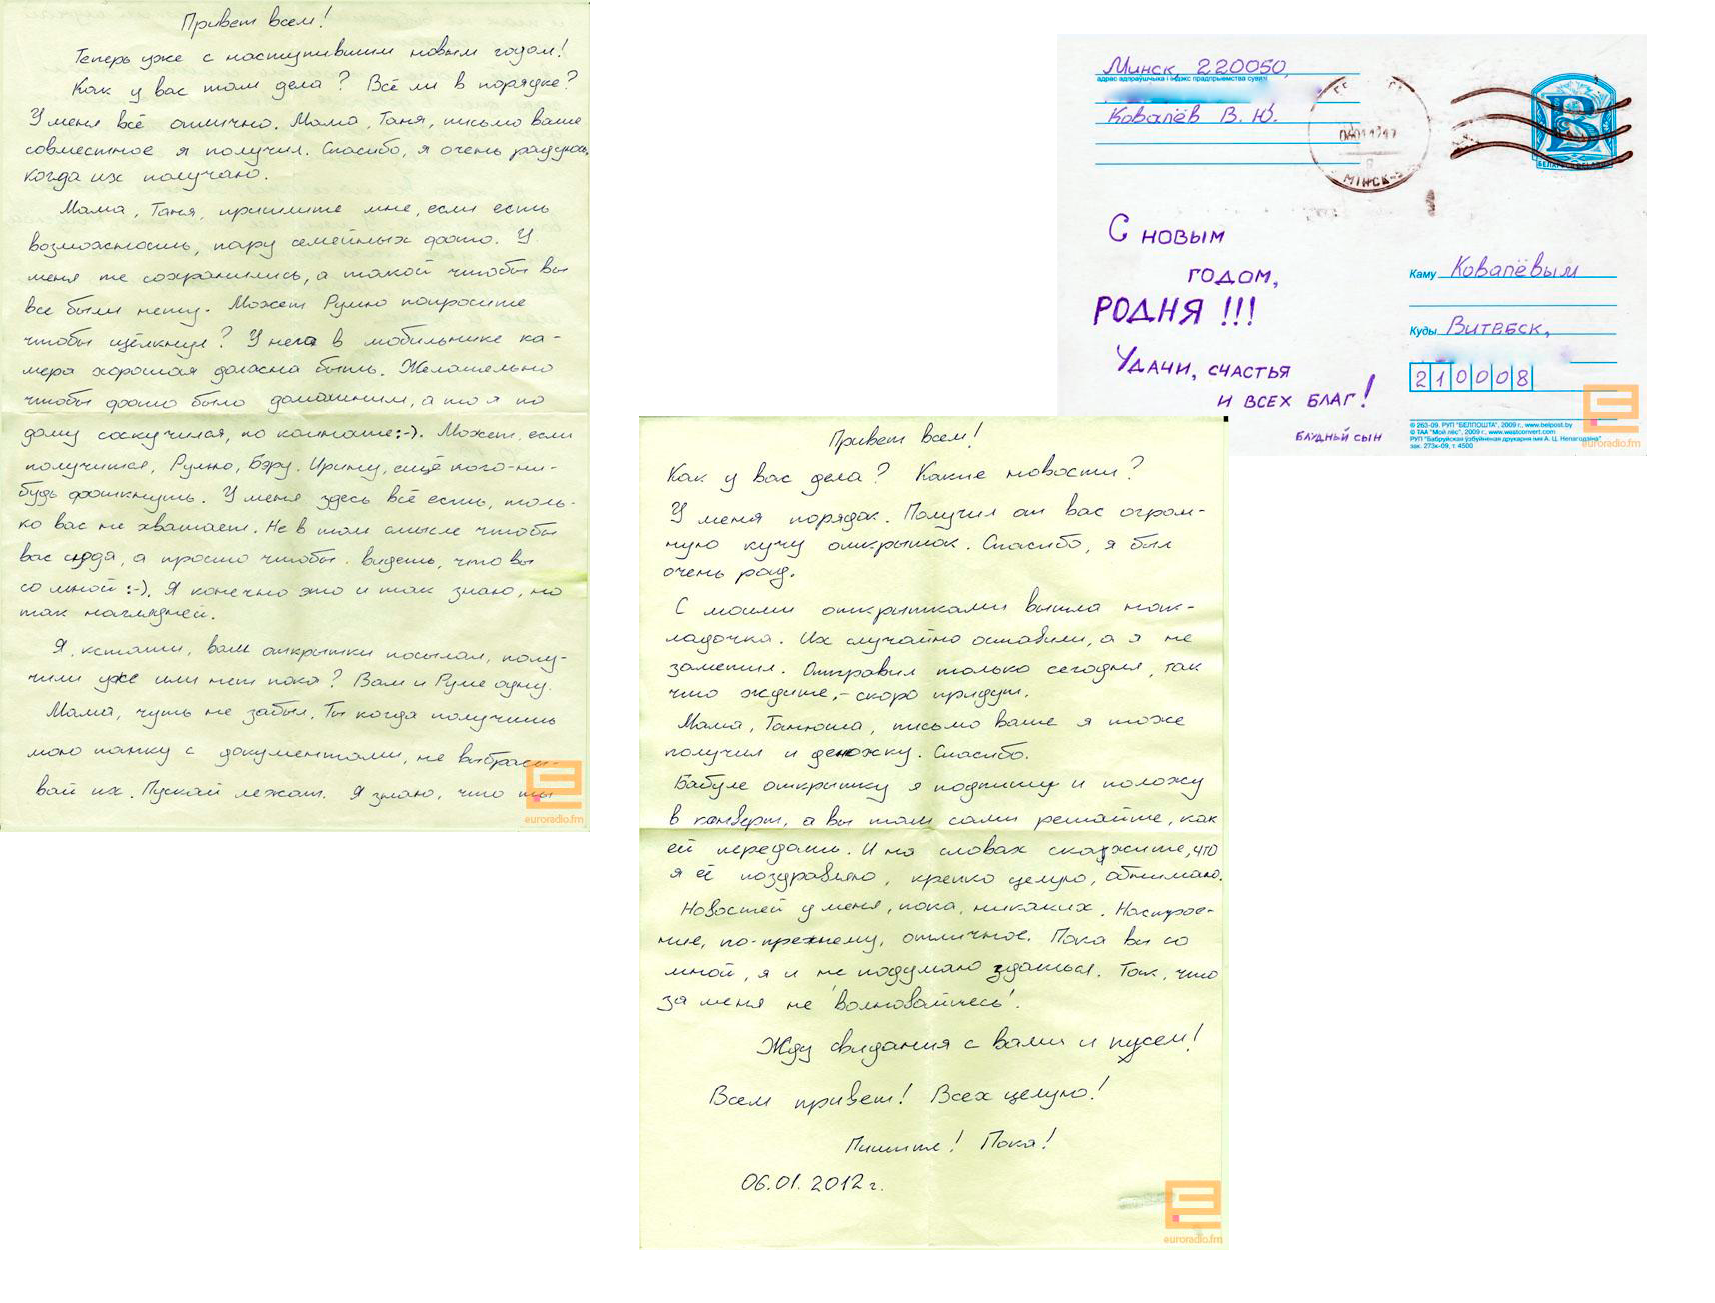 Привет всем!
Теперь уже с наступившим новым годом!
Как у вас там дела? Всё ли в порядке?
У меня всё отлично. Мама, Таня, письмо ваше
совместное я получил. Спасибо, я очень радуюсь,
когда их получаю.
Мама, Таня, пришлите мне, если есть
возможность, пару семейных фото. У
меня те сохранились, а такой чтобы вы
все были нету. Может Румю попросите
чтобы щёлкнул? У него в мобильнике ка-
мера хорошая должна быть. Желательно
чтобы фото было домашним, а то я по
дому соскучился, по комнате :-). Может, если
получится, Румю, Бэру. Ирину, ещё кого-ни-
будь фоткнуть. У меня здесь всё есть, толь-
ко вас не хватает. Не в том смысле чтобы
вас сюда, а просто чтобы видеть, что вы
со мной :-). Я конечно это и так знаю, но
так наглядней.
Я, кстати, вам открытки посылал, полу-
чили уже или нет пока? Вам и Руме одну.
Мама, чуть не забыл. Ты когда получишь
мою папку с документами, не выбрасы-
вай их. Пускай лежат. Я знаю, что ты
euroradio.fm
Минск, 220050,
адрес адпраўшчыка і індэкс прадпрыемства сувязі
Ковалёв В. Ю.
МІНСК-
БЕЛАРУСЬ BELARUS
С НОВЫМ
ГОДОМ,
РОДНЯ !!!
УДАЧИ, СЧАСТЬЯ
И ВСЕХ БЛАГ!
БЛУДНЫЙ СЫН
Каму Ковалёвым
Куды Витебск,
210008
© 263-09. РУП "БЕЛПОШТА", 2009 г., www.belpost.by
© ТАА "Мой лёс", 2009 г., www.westconvert.com
РУП "Бабруйская ўзбуйненая друкарня імя А. Ц. Непагодзіна"
зак. 273к-09, т. 4500
euroradio.fm
Привет всем!
Как у вас дела? Какие новости?
У меня порядок. Получил от вас огром-
ную кучу открыток. Спасибо, я был
очень рад.
С моими открытками вышла нак-
ладочка. Их случайно оставили, а я не
заметил. Отправил только сегодня, так
что ждите, - скоро придут.
Мама, Танюша, письмо ваше я тоже
получил и денюжку. Спасибо.
Бабуле открытку я подпишу и положу
в конверт, а вы там сами решайте, как
ей передать. И на словах скажите, что
я её поздравляю, крепко целую, обнимаю.
Новостей у меня, пока, никаких. Настрое-
ние, по-прежнему, отличное. Пока вы со
мной, я и не подумаю здаться. Так, что
за меня не волновайтесь.
Жду свидания с вами и пусем!
Всем привет! Всех целую!
Пишите! Пока!
06.01.2012 г.
euroradio.fm